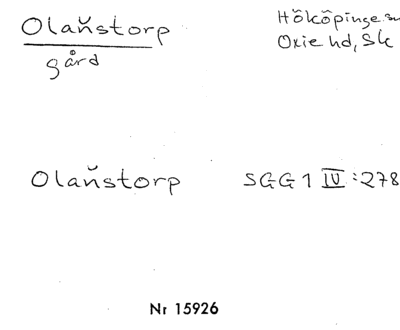 Olaňstorp
gård
Hököpinge sn
Oxie hd, Sk
Olaňstorp SGG 1 IV :278
Nr 15926